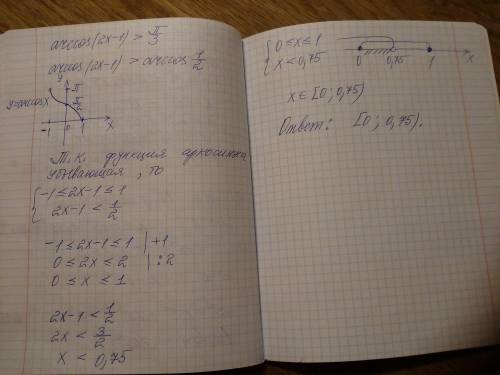 arccos(2x-1) > π/3
arccos(2x-1) > arccos 1/2
y
π
y=arccosx
π/2
-1 0 1 x
Т.к. функция арккосинуса
убывающая, то
{ -1≤2x-1≤1
2x-1 < 1/2
-1≤2x-1≤1 |+1
0≤2x≤2 |:2
0≤x≤1
2x-1 < 1/2
2x < 3/2
x < 0,75
{ 0≤x≤1
x < 0,75
0 0,75 1 x
x∈[0; 0,75)
Ответ: [0; 0,75).